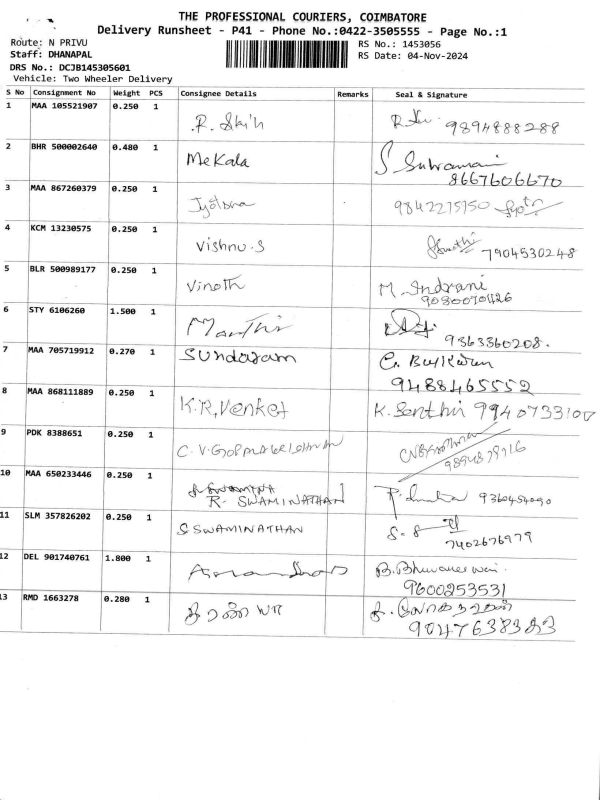 THE PROFESSIONAL COURIERS, COIMBATORE
Delivery Runsheet - P41 - Phone No.:0422-3505555 - Page No.:1
Route: N PRIVU
RS No.: 1453056
Staff: DHANAPAL
RS Date: 04-Nov-2024
DRS No.: DCJB145305601
Vehicle: Two Wheeler Delivery
S No Consignment No Weight PCS Consignee Details Remarks Seal & Signature
1 MAA 105521907 0.250 1 9894888288
2 BHR 500002640 0.480 1 Mekala S Subramani
8667606670
3 MAA 867260379 0.250 1 Jyotsna
4 KCM 13230575 0.250 1 Vishnu.S 7904530248
5 BLR 500989177 0.250 1 Vinoth M. Indrani
9080070426
6 STY 6106260 1.500 1 9363360208.
7 MAA 705719912 0.270 1 Sundaram
9488465552
8 MAA 868111889 0.250 1 K.R, Venket K. Senthil
9 PDK 8388651 0.250 1 C.V. GOPALAKRISHNAN
10 MAA 650233446 0.250 1 R. SWAMINATHAN
11 SLM 357826202 0.250 1 S SWAMINATHAN
7402676979
12 DEL 901740761 1.800 1 B. Bhuvaneswari
9600253531
13 RMD 1663278 0.280 1 சரண்யா